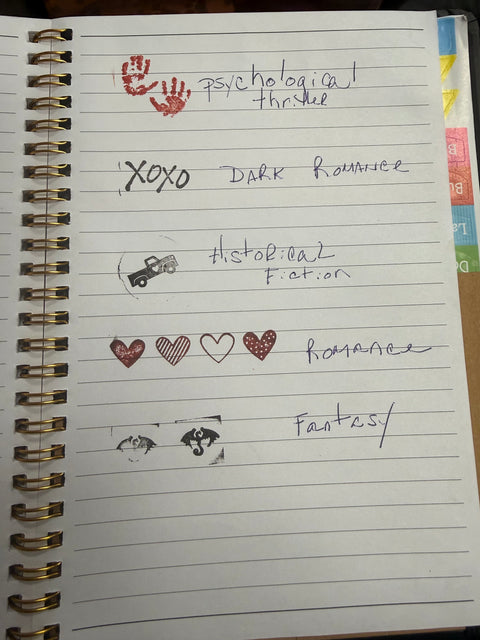 psychological
thriller
XOXO DARK ROMANCE
Historical
Fiction
Romance
Fantasy